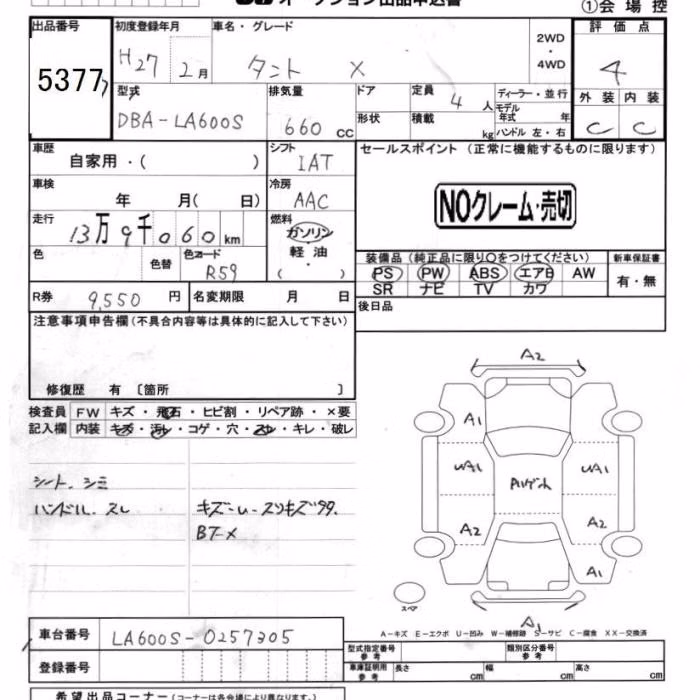 ①会場控
出品番号 初度登録年月 車名・グレード 評価点
5377 H27 2月 タント X 2WD・4WD 4
型式 排気量 ドア 定員 4人 ディーラー・並行 外装 内装
DBA-LA600S 660cc 形状 積載 kg モデル年式 年 ハンドル 左・右 C C
車歴 自家用・( ) シフト IAT セールスポイント(正常に機能するものに限ります)
車検 年 月( 日) 冷房 AAC NOクレーム・売切
走行 13万9千060km 燃料 ガソリン・軽油・( )
色 色替 色コード R59 装備品(純正品に限り○をつけてください) 新車保証書
PS PW ABS エアB AW 有・無
SR ナビ TV カワ
R券 9,550円 名変期限 月 日 後日品
注意事項申告欄(不具合内容等は具体的に記入して下さい)
修復歴 有〔箇所 〕
検査員 FW キズ・飛石・ヒビ割・リペア跡・×要
記入欄 内装 キズ・汚レ・コゲ・穴・スレ・キレ・破レ
シート、シミ
ハンドル、スレ
BT-X
A2
A1
UA1 UA1
A2 A2
A1
スペア
A1
A-キズ E-エクボ U-凹み W-補修跡 S-サビ C-腐食 XX-交換済
車台番号 LA600S-0257305
型式指定番号 参考 類別区分番号 参考
登録番号 車庫証明用 参考 長さ cm 幅 cm 高さ cm
希望出品コーナー(コーナーは各会場により異なります。)